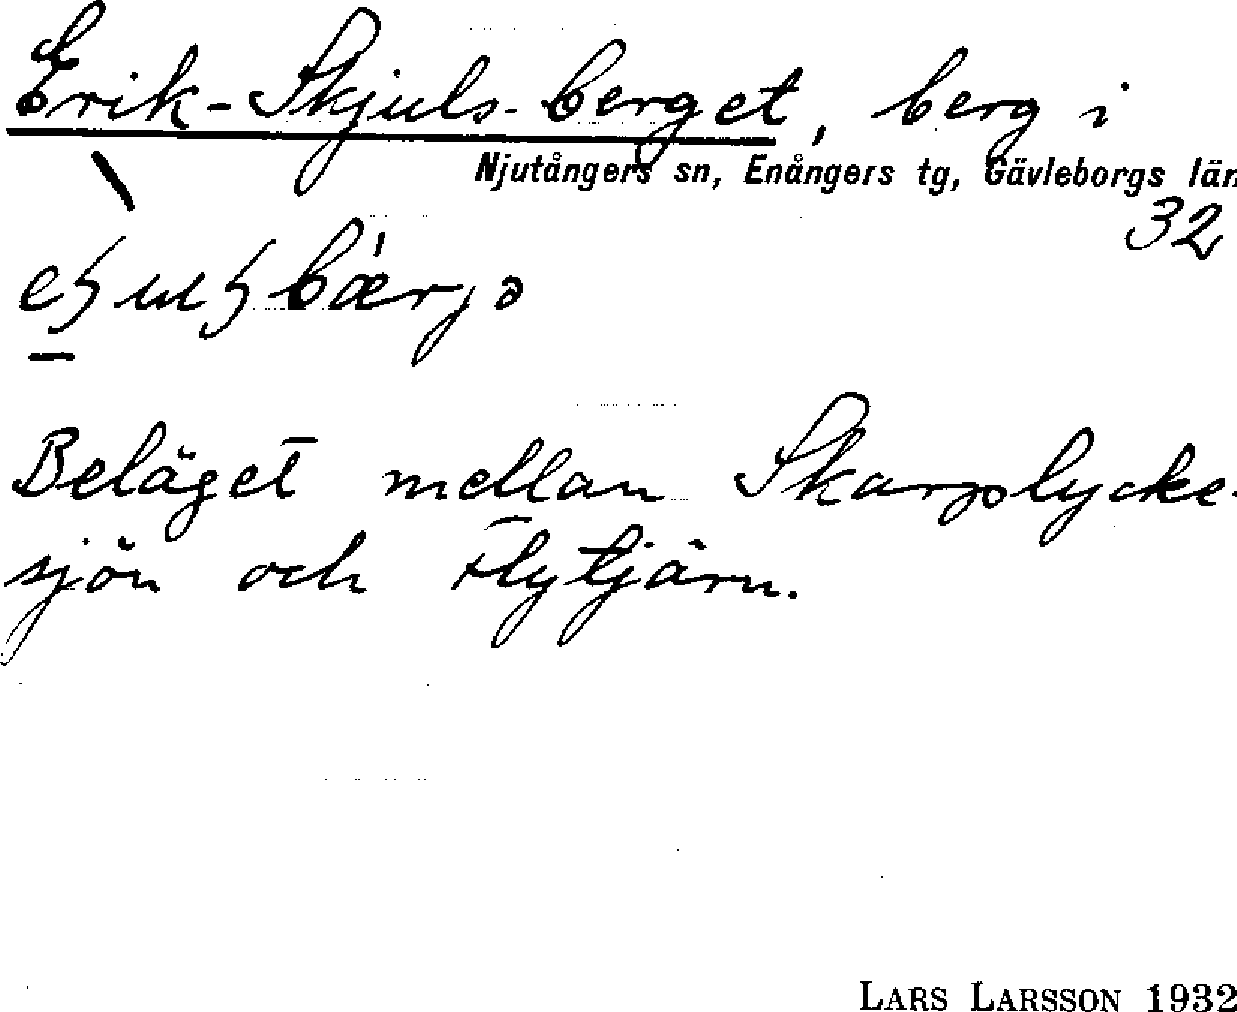 Erik-Skjuls-berget, berg i
Njutångers sn, Enångers tg, Gävleborgs län
32
Beläget mellan Skarplycke-
sjön och Flytjärn.
LARS LARSSON 1932